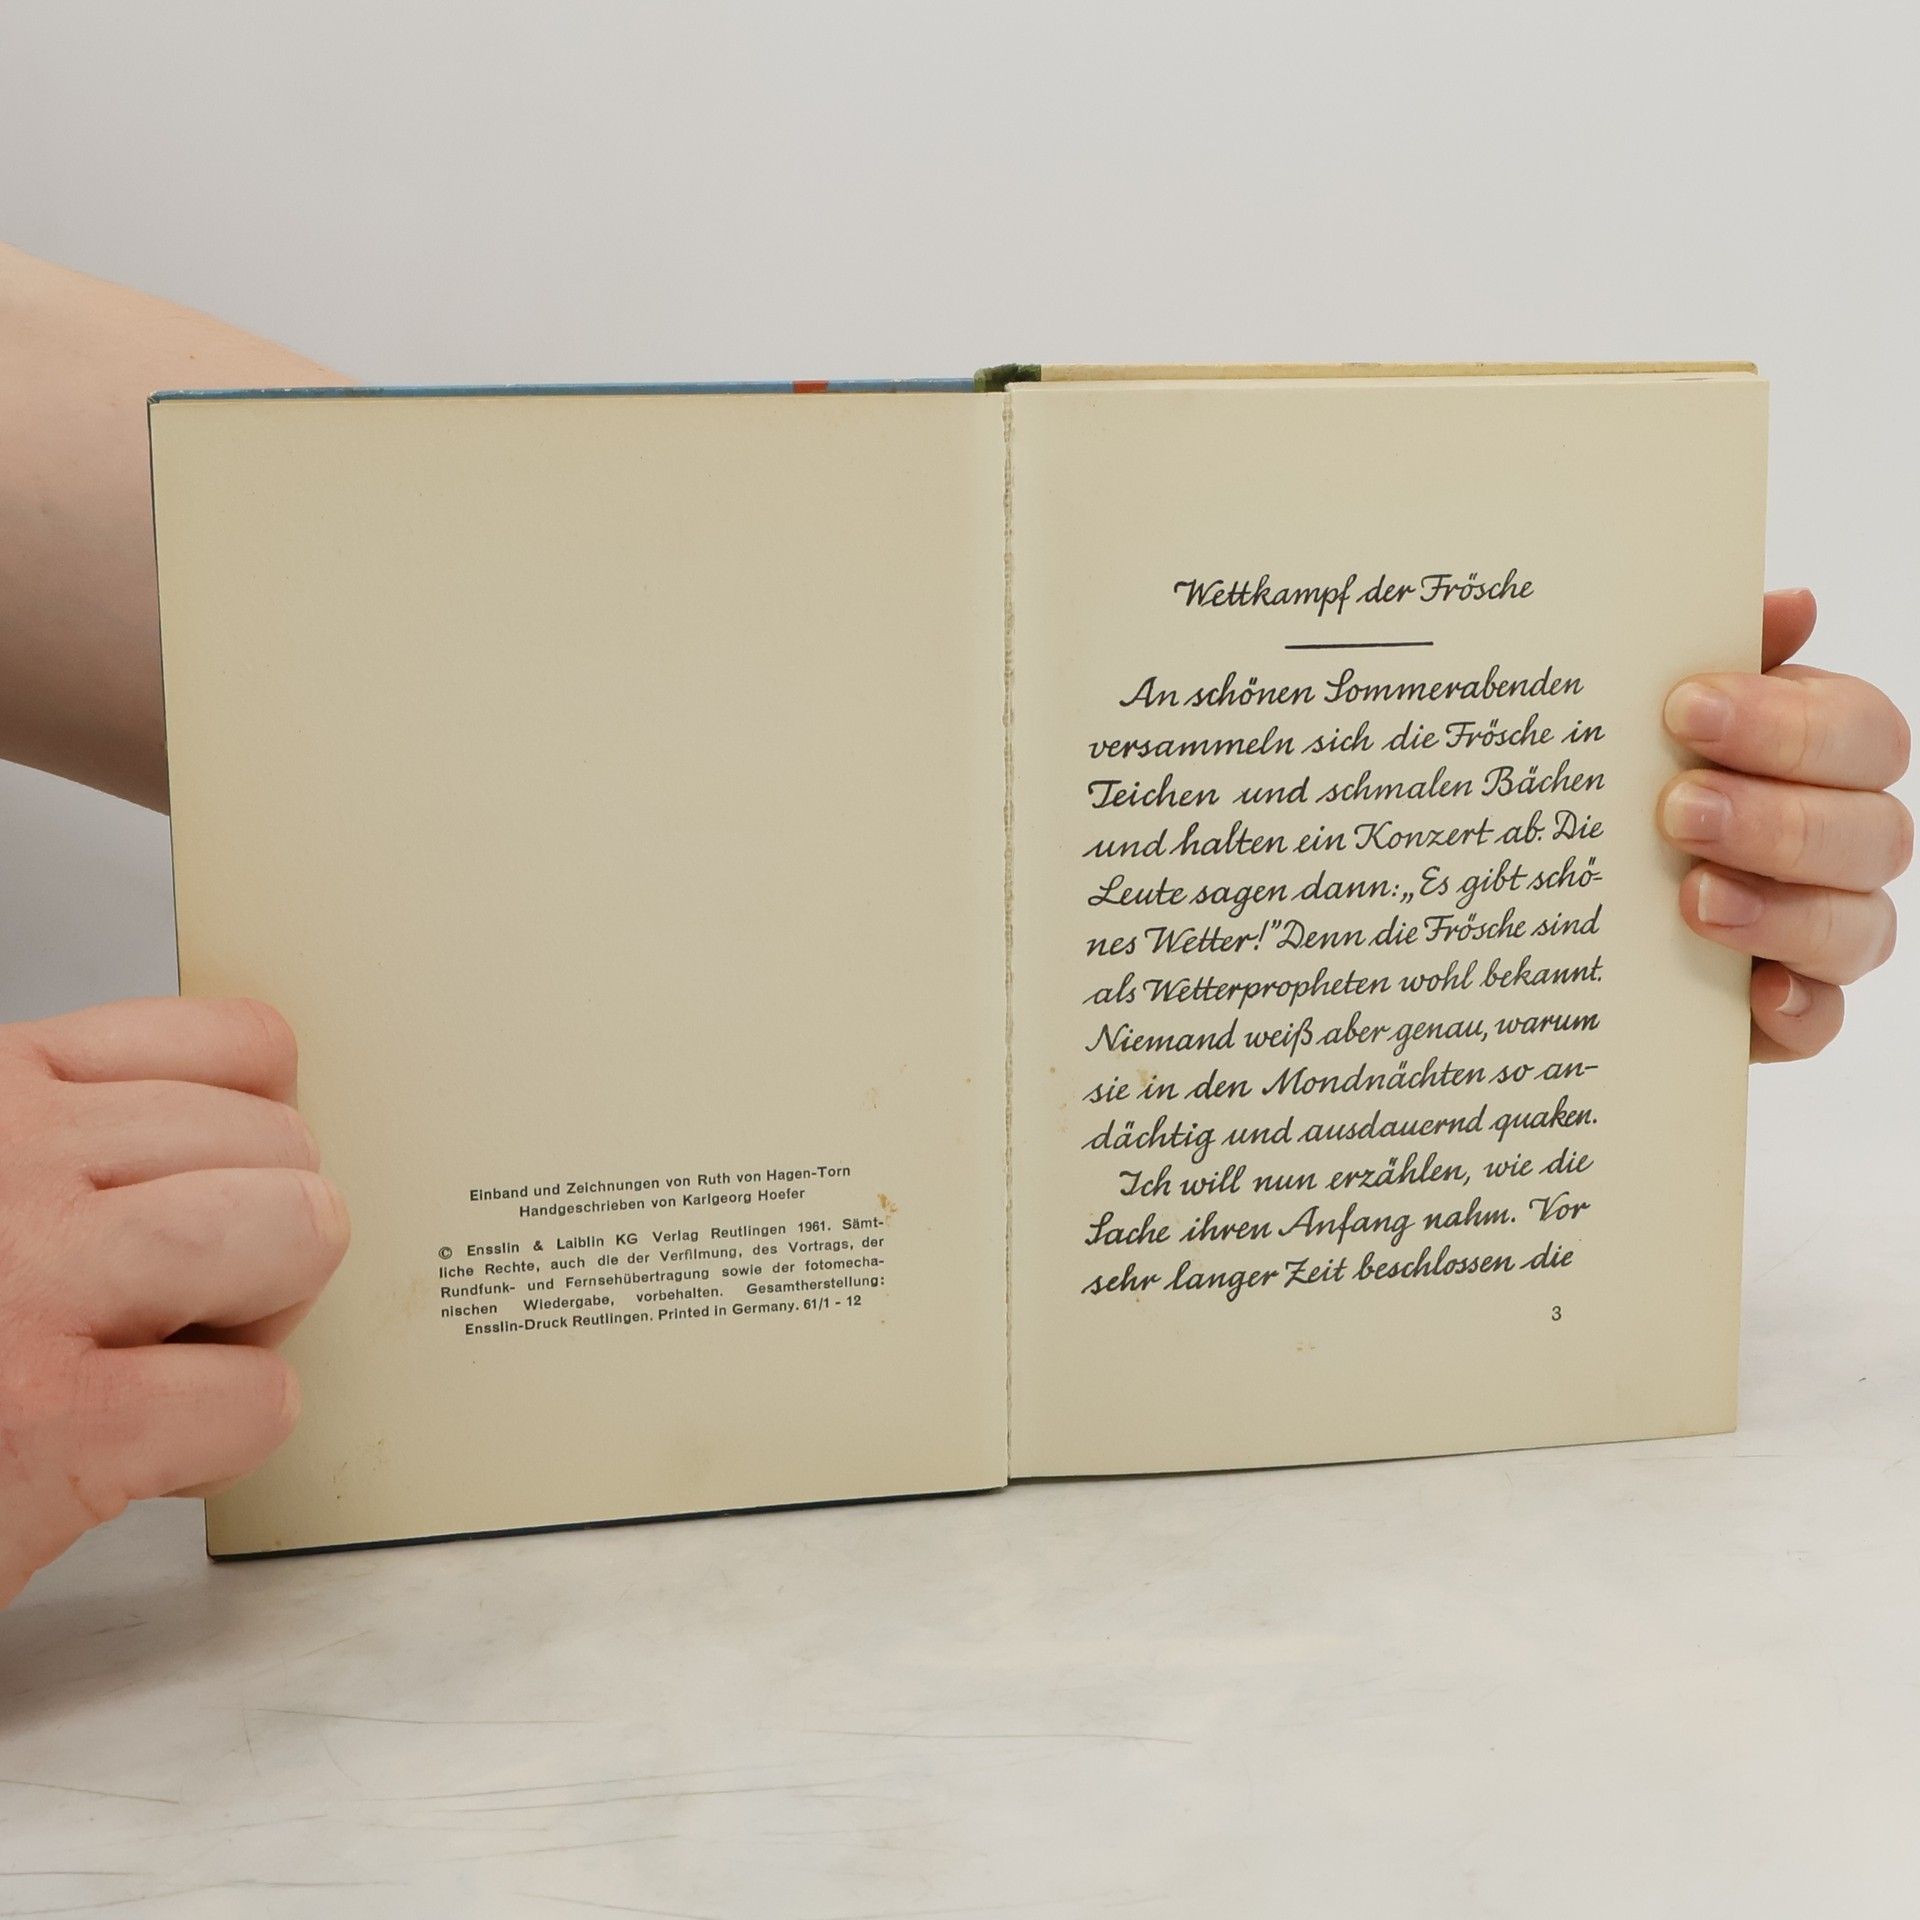 Einband und Zeichnungen von Ruth von Hagen-Torn
Handgeschrieben von Karlgeorg Hoefer
© Ensslin & Laiblin KG Verlag Reutlingen 1961. Sämt-
liche Rechte, auch die der Verfilmung, des Vortrags, der
Rundfunk- und Fernsehübertragung sowie der fotomecha-
nischen Wiedergabe, vorbehalten. Gesamtherstellung:
Ensslin-Druck Reutlingen. Printed in Germany. 61/1 - 12
Wettkampf der Frösche
An schönen Sommerabenden
versammeln sich die Frösche in
Teichen und schmalen Bächen
und halten ein Konzert ab. Die
Leute sagen dann: „Es gibt schö-
nes Wetter!” Denn die Frösche sind
als Wetterpropheten wohl bekannt.
Niemand weiß aber genau, warum
sie in den Mondnächten so an-
dächtig und ausdauernd quaken.
Ich will nun erzählen, wie die
Sache ihren Anfang nahm. Vor
sehr langer Zeit beschlossen die
3